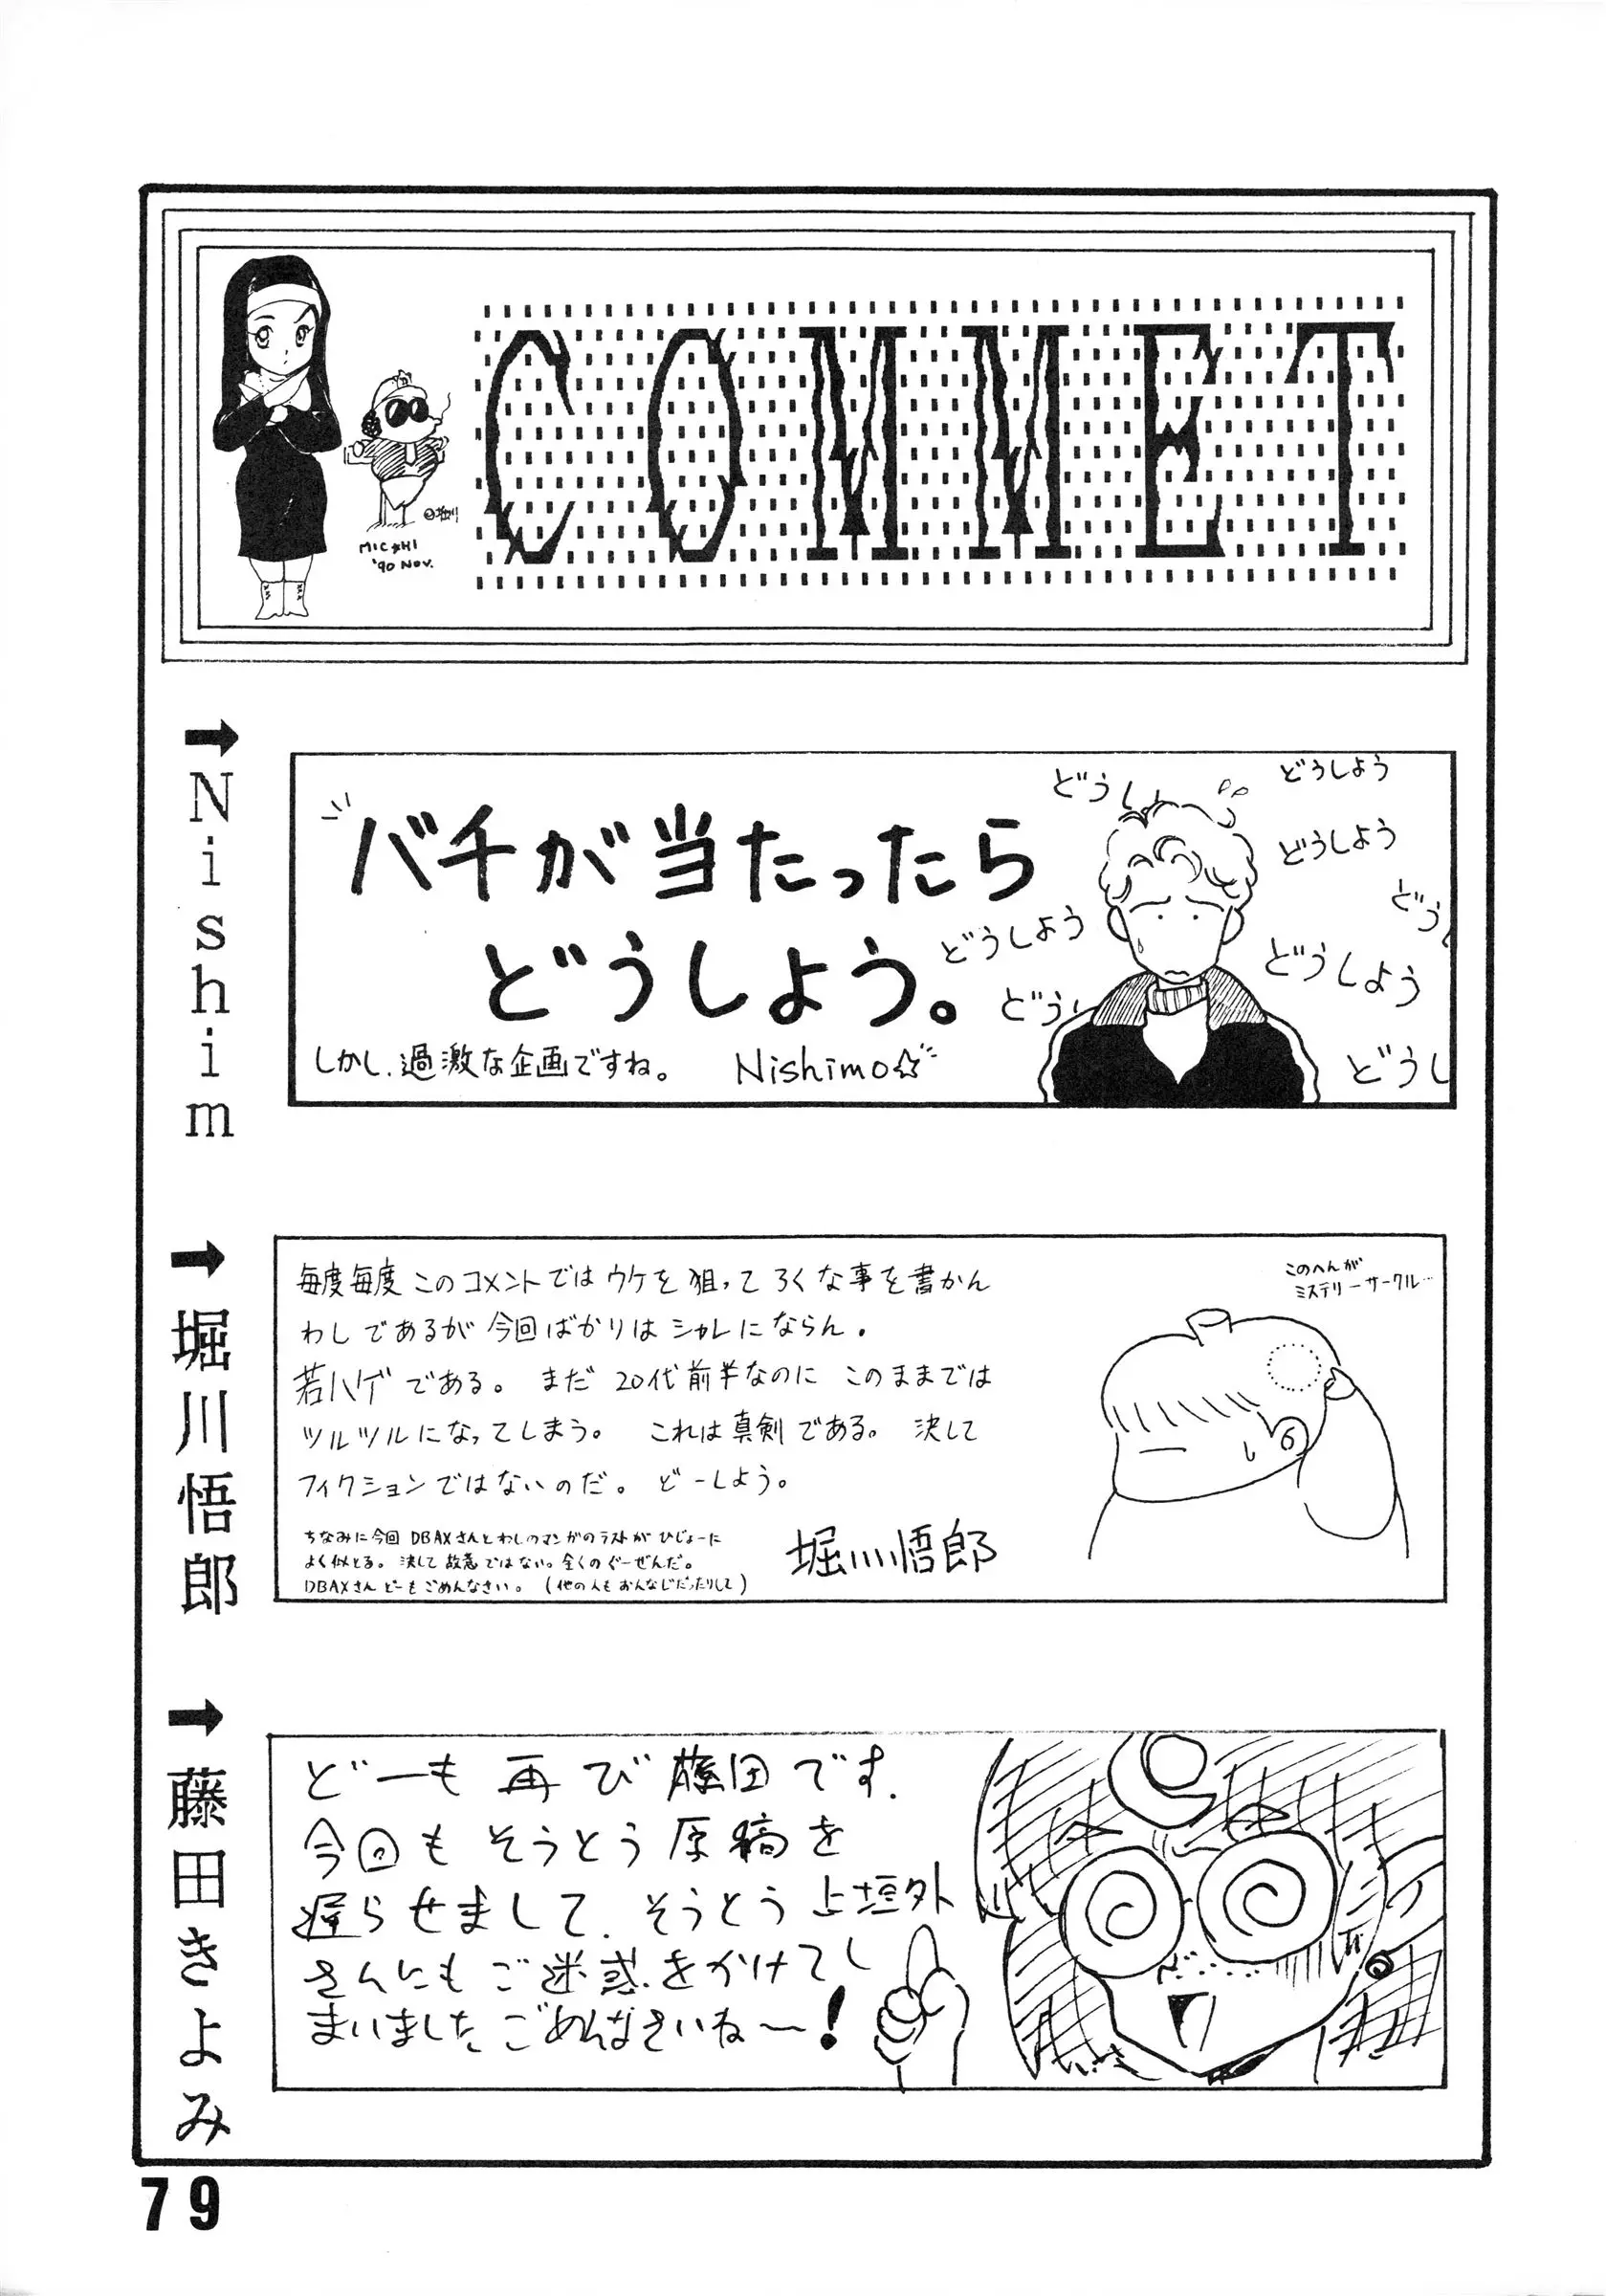 COMMET
©堀川
MIC★HI
'90 NOV.
→Nishim
バチが当たったら
どうしよう。
しかし、過激な企画ですね。 Nishimo☆
どうし
どうしよう
どうしよう
どう
どうしよう
どうしよう
どう
どうし
→堀川悟郎
毎度毎度このコメントではウケを狙ってろくな事を書かん
わしであるが今回ばかりはシャレにならん。
若ハゲである。 まだ20代前半なのに このままでは
ツルツルになってしまう。 これは真剣である。 決して
フィクションではないのだ。 どーしよう。
ちなみに今回DBAXさんとわしのマンガのラストがひじょーに
よく似とる。決して故意ではない。全くのぐーぜんだ。
DBAXさんどーもごめんなさい。(他の人もおんなじだったりして)
堀川悟郎
このへんが
ミステリーサークル…
→藤田きよみ
どーも再び藤田です.
今回もそうとう原稿を
遅らせまして、そうとう上垣外
さんにもご迷惑をかけてし
まいました、ごめんなさいね〜!
79